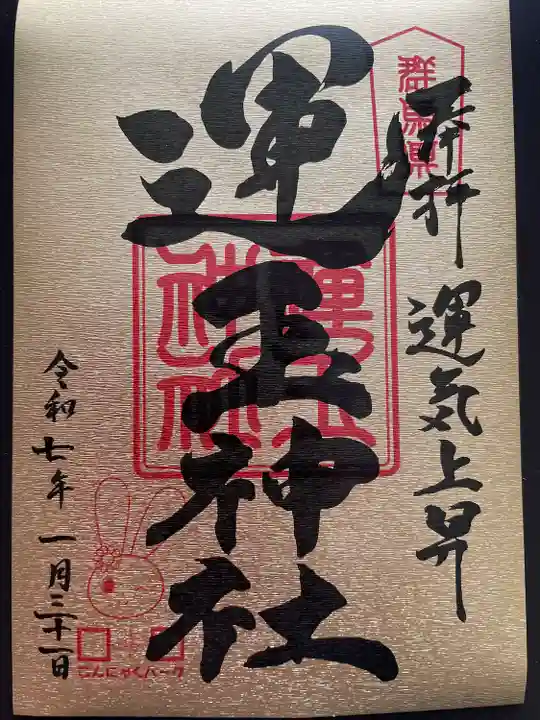 奉拝 運気上昇
群馬県
運玉神社
令和七年一月三十一日
こんにゃくパーク